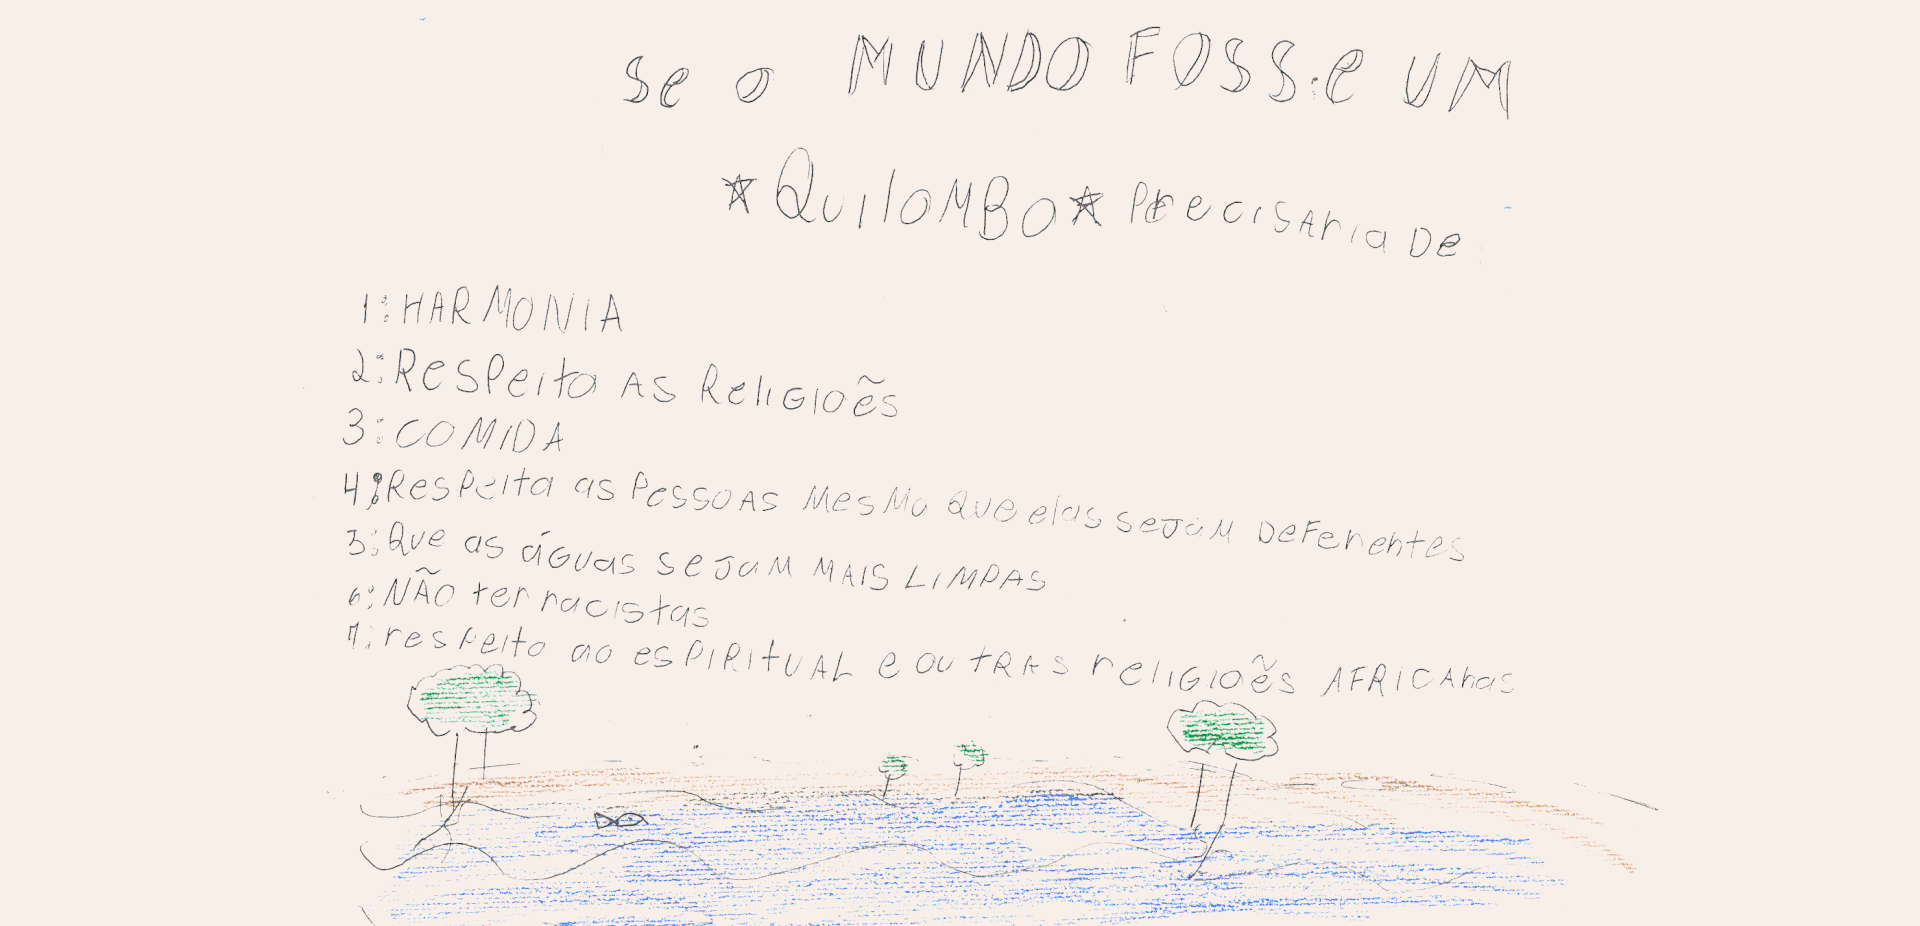 Se o MUNDO FOSSE UM
QUILOMBO PRECISARIA DE
1: HARMONIA
2: Respeito as Religiões
3: COMIDA
4: Respeita as Pessoas mesmo que elas sejam deferentes
5: Que as águas sejam MAIS LIMPAS
6: NÃO ter racistas
7: respeito ao espiritual e outras religiões AFRICANAS